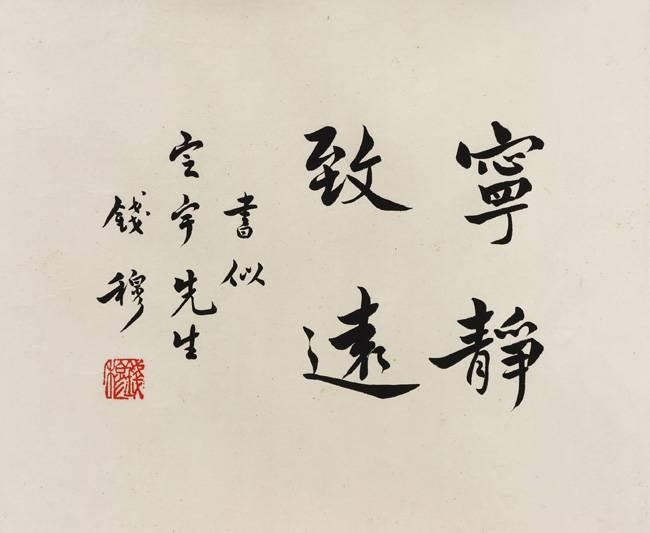 寧靜
致遠
書似
定宇先生
錢穆
錢穆